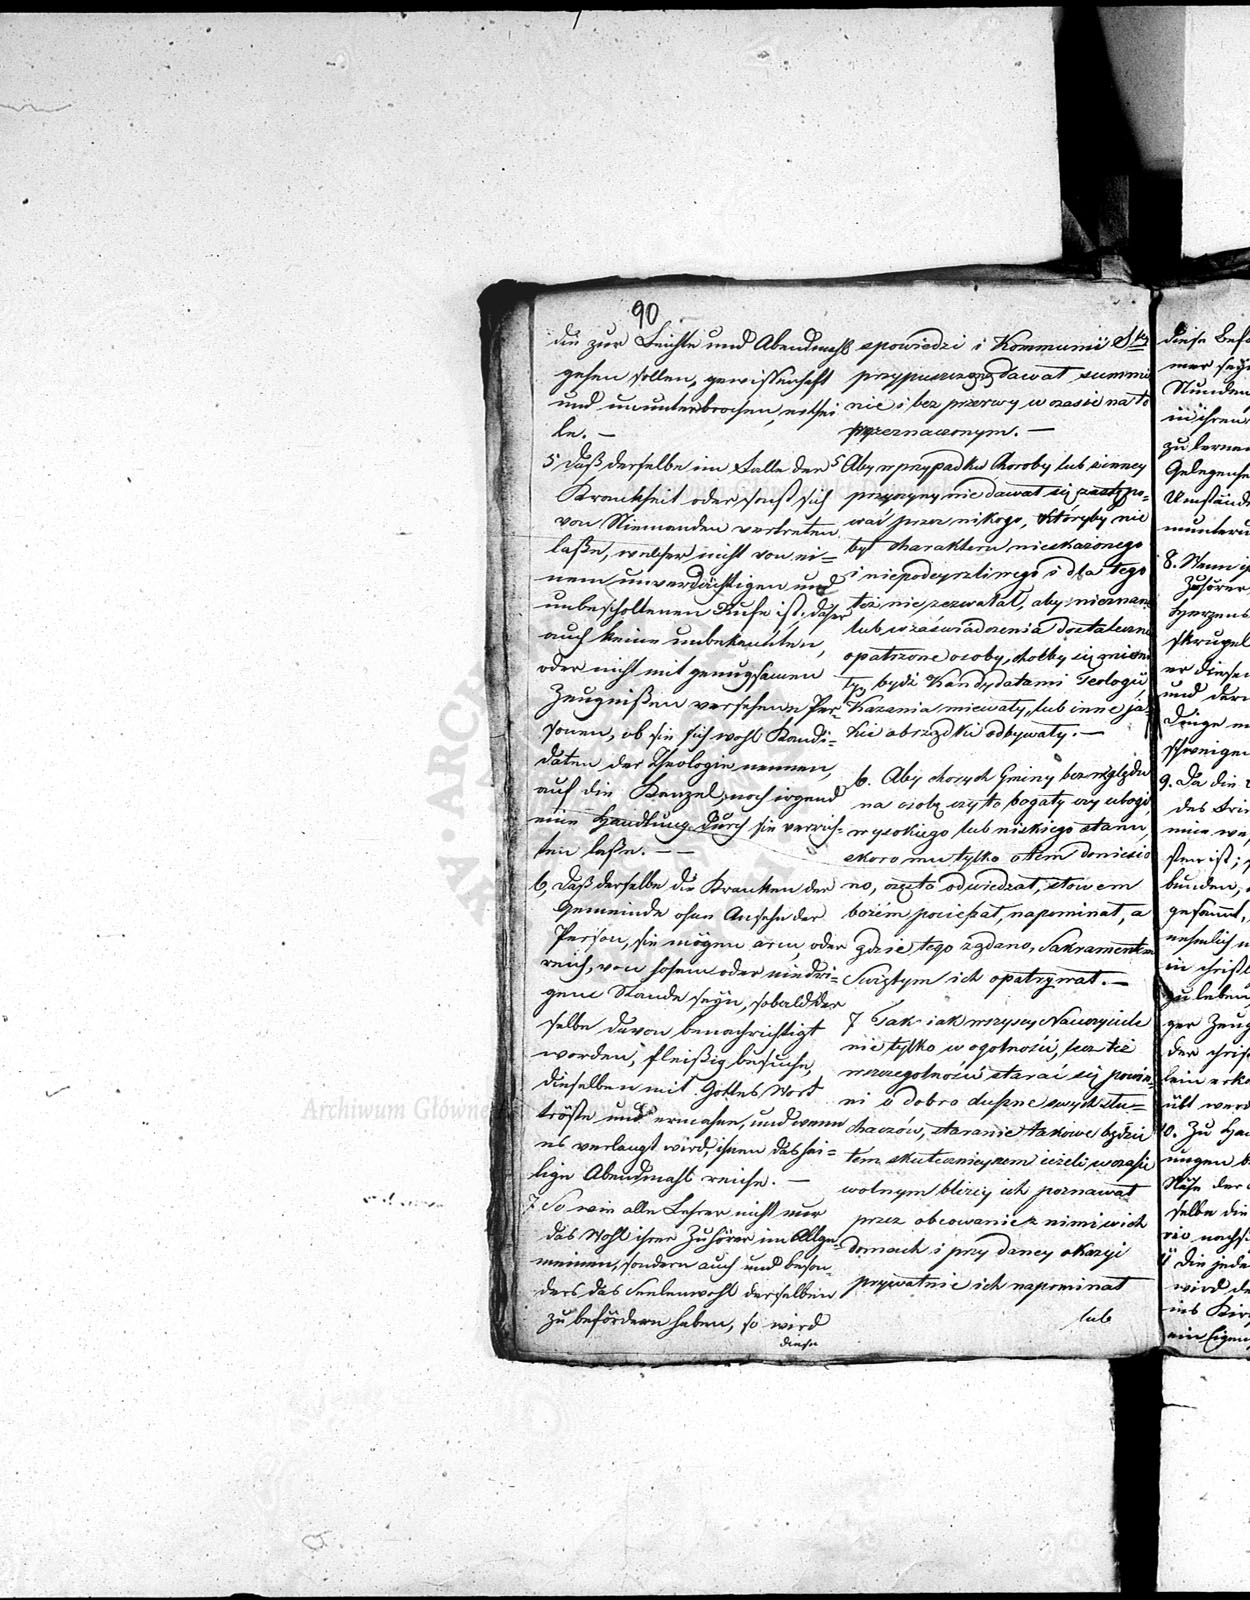 90
die zur Beichte und Abendmahl
gehen sollen, gewissenhaft
und ununterbrochen, erthei
le. —
5 Daß derselbe im Falle der
Krankheit oder sonst sich
von Niemanden vertreten
laße, welcher nicht von ei=
nem unverdächtigen und
unbescholtenen Rufe ist, daher
auch keine unbekannten,
oder nicht mit genugsamen
Zeugnißen versehene Per=
sonen, ob sie sich wohl Kandi=
daten der Theologie nennen,
auf die Kanzel, noch irgend
eine Handlung durch sie verrich=
ten laße. — —
6, Daß derselbe die Kranken der
Gemeinde ohne Ansehn der
Person, sie mögen arm, oder
reich, von hohem oder niedri=
gem Stande seyn, sobald der
selbe davon benachrichtigt
worden, fleißig besuche,
dieselben mit Gottes Wort
tröste und ermahne, und wenn
es verlangt wird, ihnen das hei=
lige Abendmahl reiche. —
7. So wie alle Lehrer nicht nur
das Wohl ihrer Zuhörer im Allge=
meinen, sondern auch und beson=
ders das Seelenwohl derselben
zu befördern haben, so wird
diese
spowiedzi i Kommunii Sty
przypuszczony dawał summi
nie i bez przerwy w czasie na to
przeznaczonym. —
5 Aby w przypadku choroby lub inney
przyczyny nie dawał się zastępo=
wać przez nikogo, któryby nie
był charakteru nieskażonego
i niepodeyrzliwego i dla tego
też nie zezwalał, aby nieznane
lub w zaświadczenia dostateczne
opatrzone osoby, choćby się mieni
ły bydź Kandydatami Teologii,
Kazania miewały, lub inne ja=
kie obrządki odbywały. —
6. Aby chorych Gminy bez względu
na osobę czy to bogaty czy ubogi,
wysokiego lub niskiego stanu,
skoro mu tylko o tem doniesio
no, często odwiedzał, słowem
bożem pocieszał, napominał, a
gdzie tego żądano, Sakramentem
Swiętym ich opatrywał. —
7 Tak iak wszyscy Nauczyciele
nie tylko w ogolności, lecz też
w szczegolności starać się powin=
ni o dobro duszne swych słu=
chaczów, staranie takowe będzie
tem skutecznieyszem ieżeli w czasie
wolnym bliżey ich poznawał
przez obcowanie z nimi w ich
domach i przy daney okazyi
prywatnie ich napominał
lub
diese
mer
Stunden
in ihren
zu lernen
Gelegenhe
Umstände
8. Wenn
Zuhörer
Herzens
er diesen
und
9. Da die
des
gesamt,
nehmlich
in christ
zu leben
der christ
10. Zu
der
selbe die
die jede
wird
ins